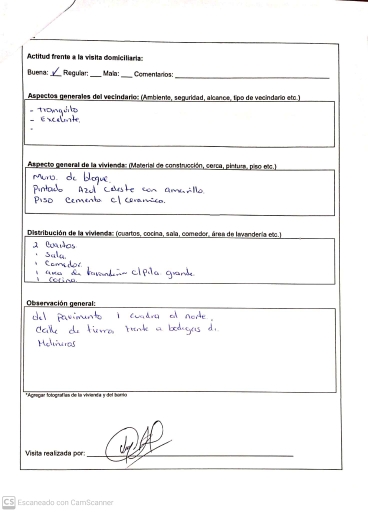 Actitud frente a la visita domiciliaria:
Buena: ✓ Regular: ___ Mala: ___ Comentarios: ___
Aspectos generales del vecindario: (Ambiente, seguridad, alcance, tipo de vecindario etc.)
- Tranquilo
- Excelente.
-
Aspecto general de la vivienda: (Material de construcción, cerca, pintura, piso etc.)
Muro. de bloque.
Pintado Azul celeste con amarillo.
Piso Cemento c/ ceramica.
Distribución de la vivienda: (cuartos, cocina, sala, comedor, área de lavandería etc.)
2 Cuartos
1 Sala.
1 Comedor.
1 area de lavanderia c/pila grande.
1 Cocina
Observación general:
del pavimento 1 cuadra al norte,
Calle de tierra frente a bodegas de
Molineros
*Agregar fotografías de la vivienda y del barrio
Visita realizada por:
CS Escaneado con CamScanner